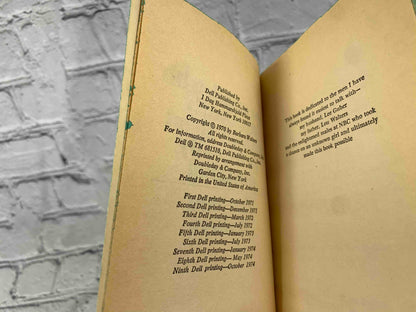 Published by
Dell Publishing Co., Inc.
1 Dag Hammarskjold Plaza
New York, New York 10017
Copyright © 1970 by Barbara Walters
All rights reserved.
For information, address Doubleday & Company, Inc.
Dell ® TM 681510, Dell Publishing Co., Inc.
Reprinted by arrangement with
Doubleday & Company, Inc.
Garden City, New York
Printed in the United States of America
First Dell printing—October 1971
Second Dell printing—December 1971
Third Dell printing—March 1972
Fourth Dell printing—July 1972
Fifth Dell printing—January 1973
Sixth Dell printing—July 1973
Seventh Dell printing—January 1974
Eighth Dell printing—May 1974
Ninth Dell printing—October 1974
This book is dedicated to the men I have
always found it easiest to talk with—
my husband, Lee Guber
my father, Lou Walters
and the enlightened males at NBC who took
a chance on an unknown girl and ultimately
made this book possible